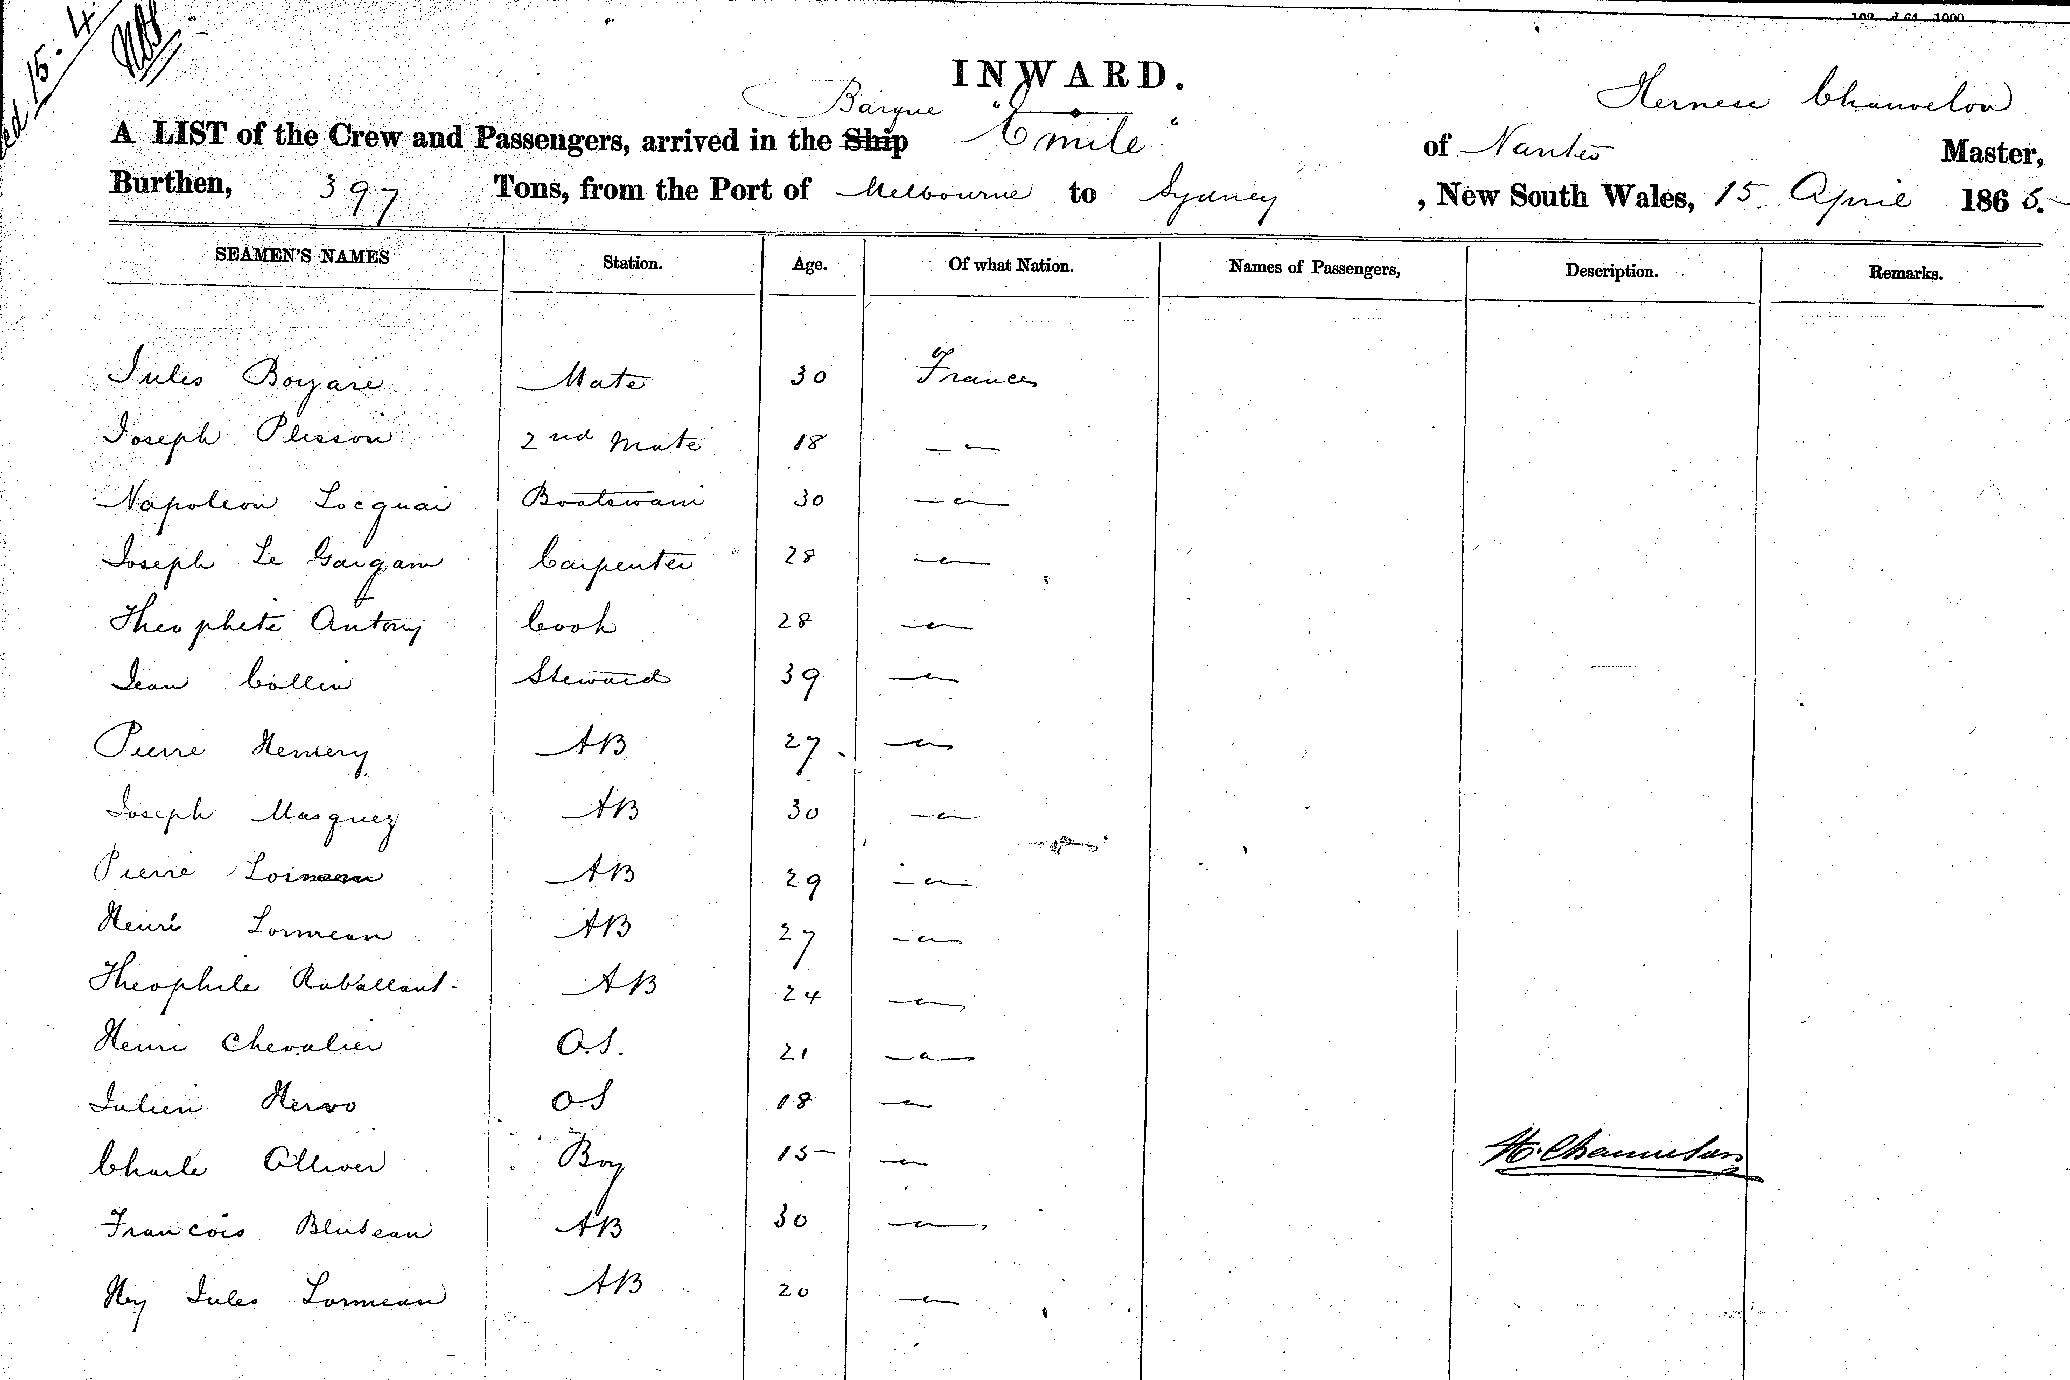 15.4
INWARD.
Barque Hernese Chanvelon
A LIST of the Crew and Passengers, arrived in the Ship "Emile" of Nantes Master,
Burthen, 397 Tons, from the Port of Melbourne to Sydney, New South Wales, 15 April 186
SEAMEN'S NAMES Station. Age. Of what Nation. Names of Passengers, Description. Remarks.
Jules Boyare Mate 30 France
Joseph Plisson 2nd Mate 18 — " —
Napoleon Locquai Boatswain 30 — " —
Joseph Le Gargam Carpenter 28 — " —
Theophete Antony Cook 28 — " —
Jean Collin Steward 39 — " —
Pierre Hemery AB 27 — " —
Joseph Masquez AB 30 — " —
Pierre AB 29 — " —
Henri Lormeau AB 27 — " —
Theophile Raballant AB 24 — " —
Henri Chevalier O.S. 21 — " —
Julien Hervo OS 18 — " —
Charle Olliver Boy 15 — " —
H. Chanvelon
Francois Bluteau AB 30 — " —
Hy Jules Lormeau AB 20 — " —